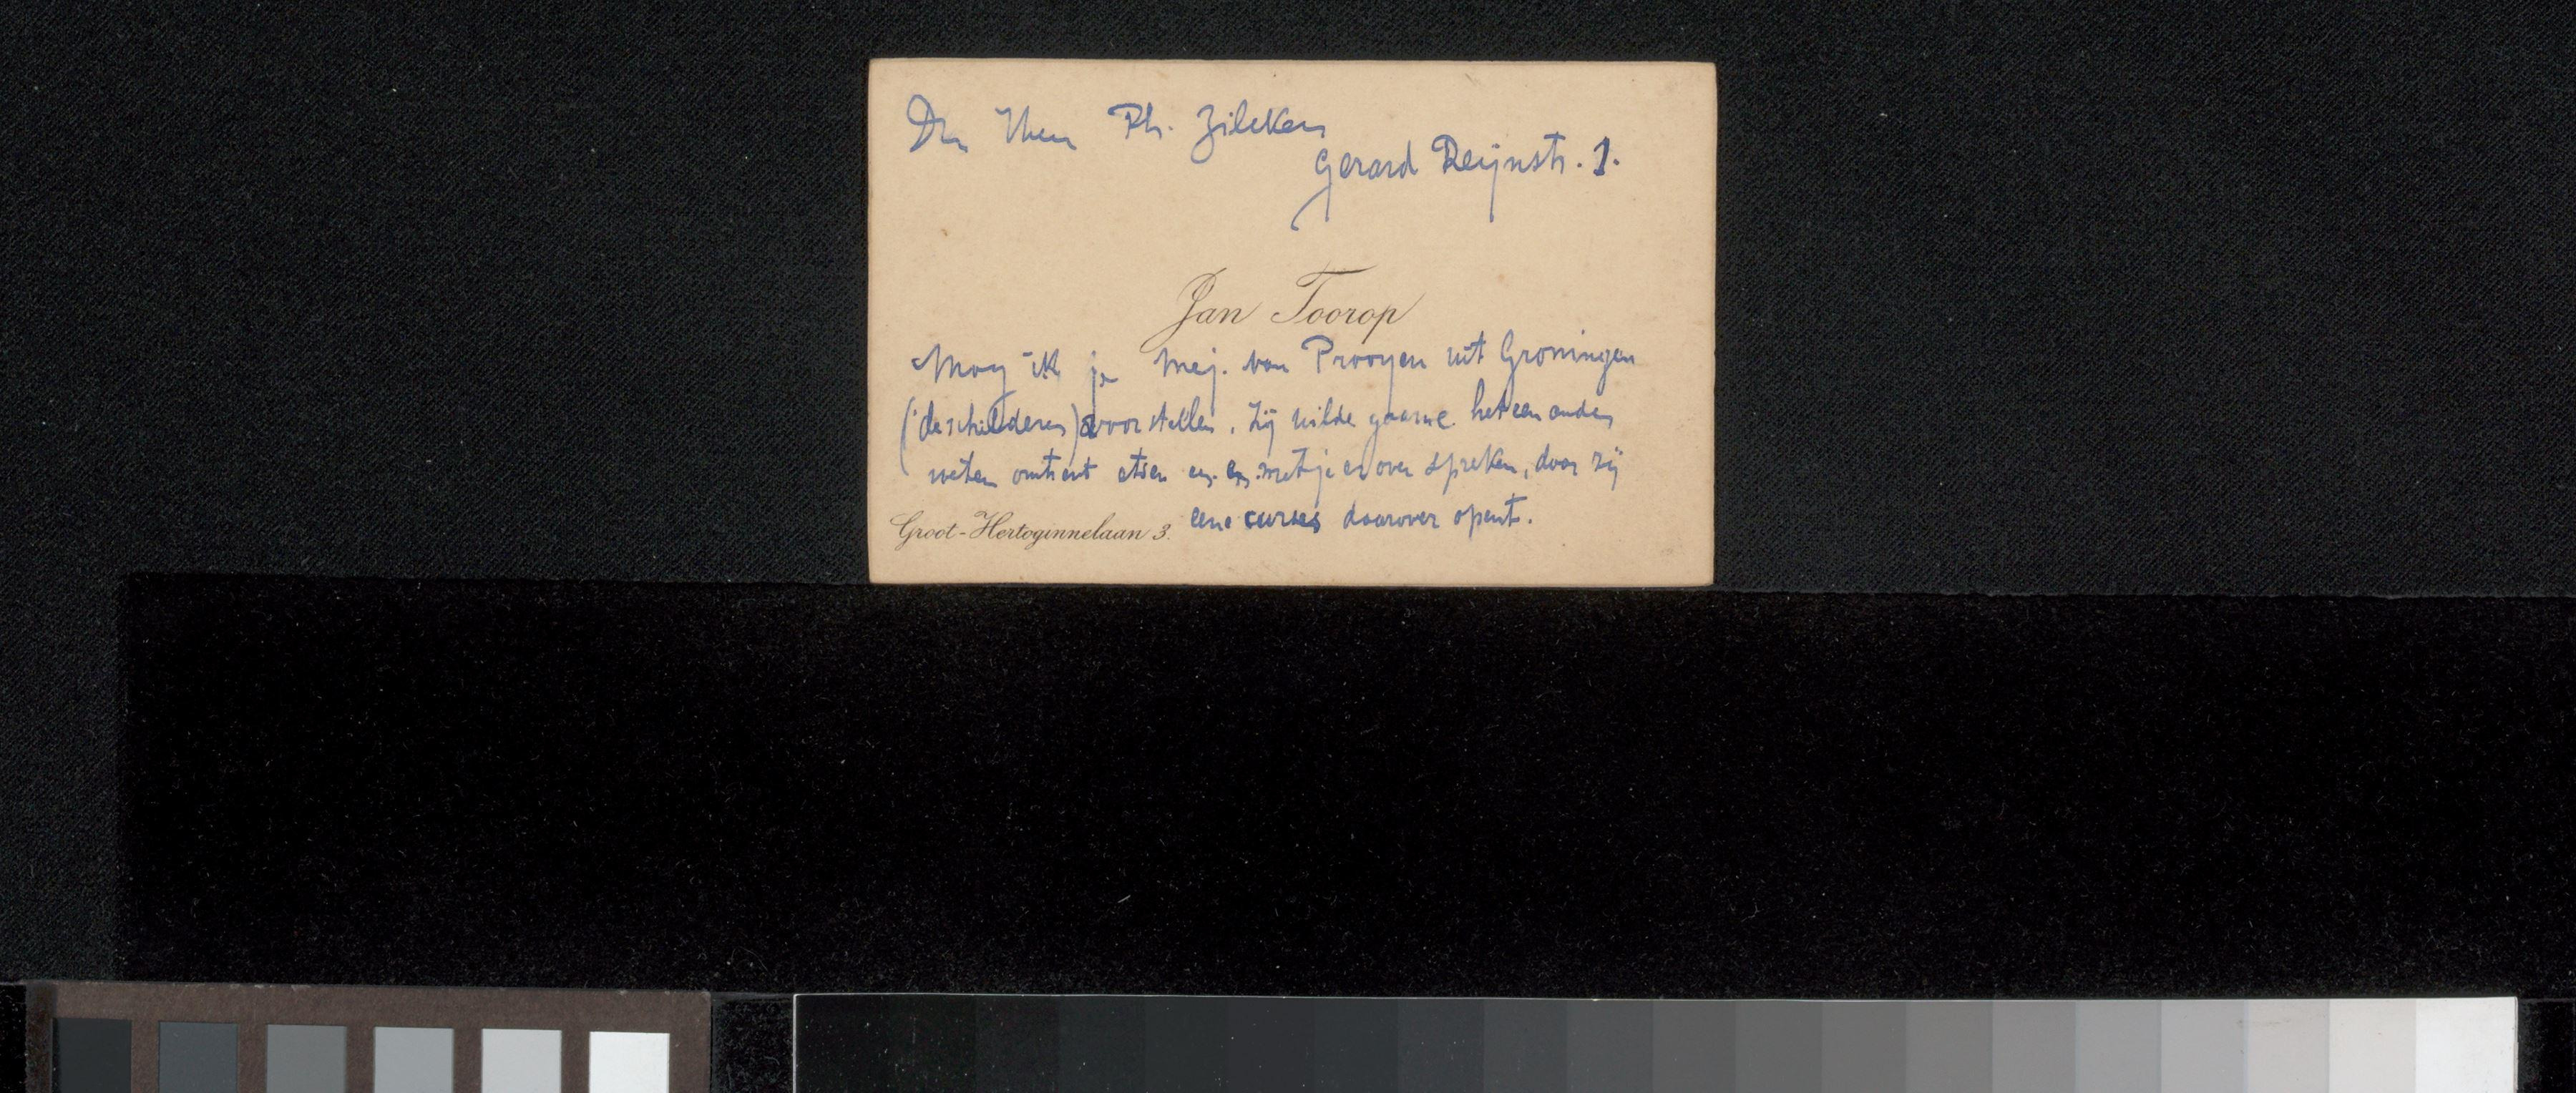 Den Heer Ph. Zilcken
Gerard Reijnstr. 1.
Jan Toorop
Mag ik je Mej. van Prooyen uit Groningen
(de schilderes) voorstellen. Zij wilde gaarne het een ander
weten omtrent etsen en met je er over spreken, daar zij
eene curses daarover opent.
Groot-Hertoginnelaan 3.